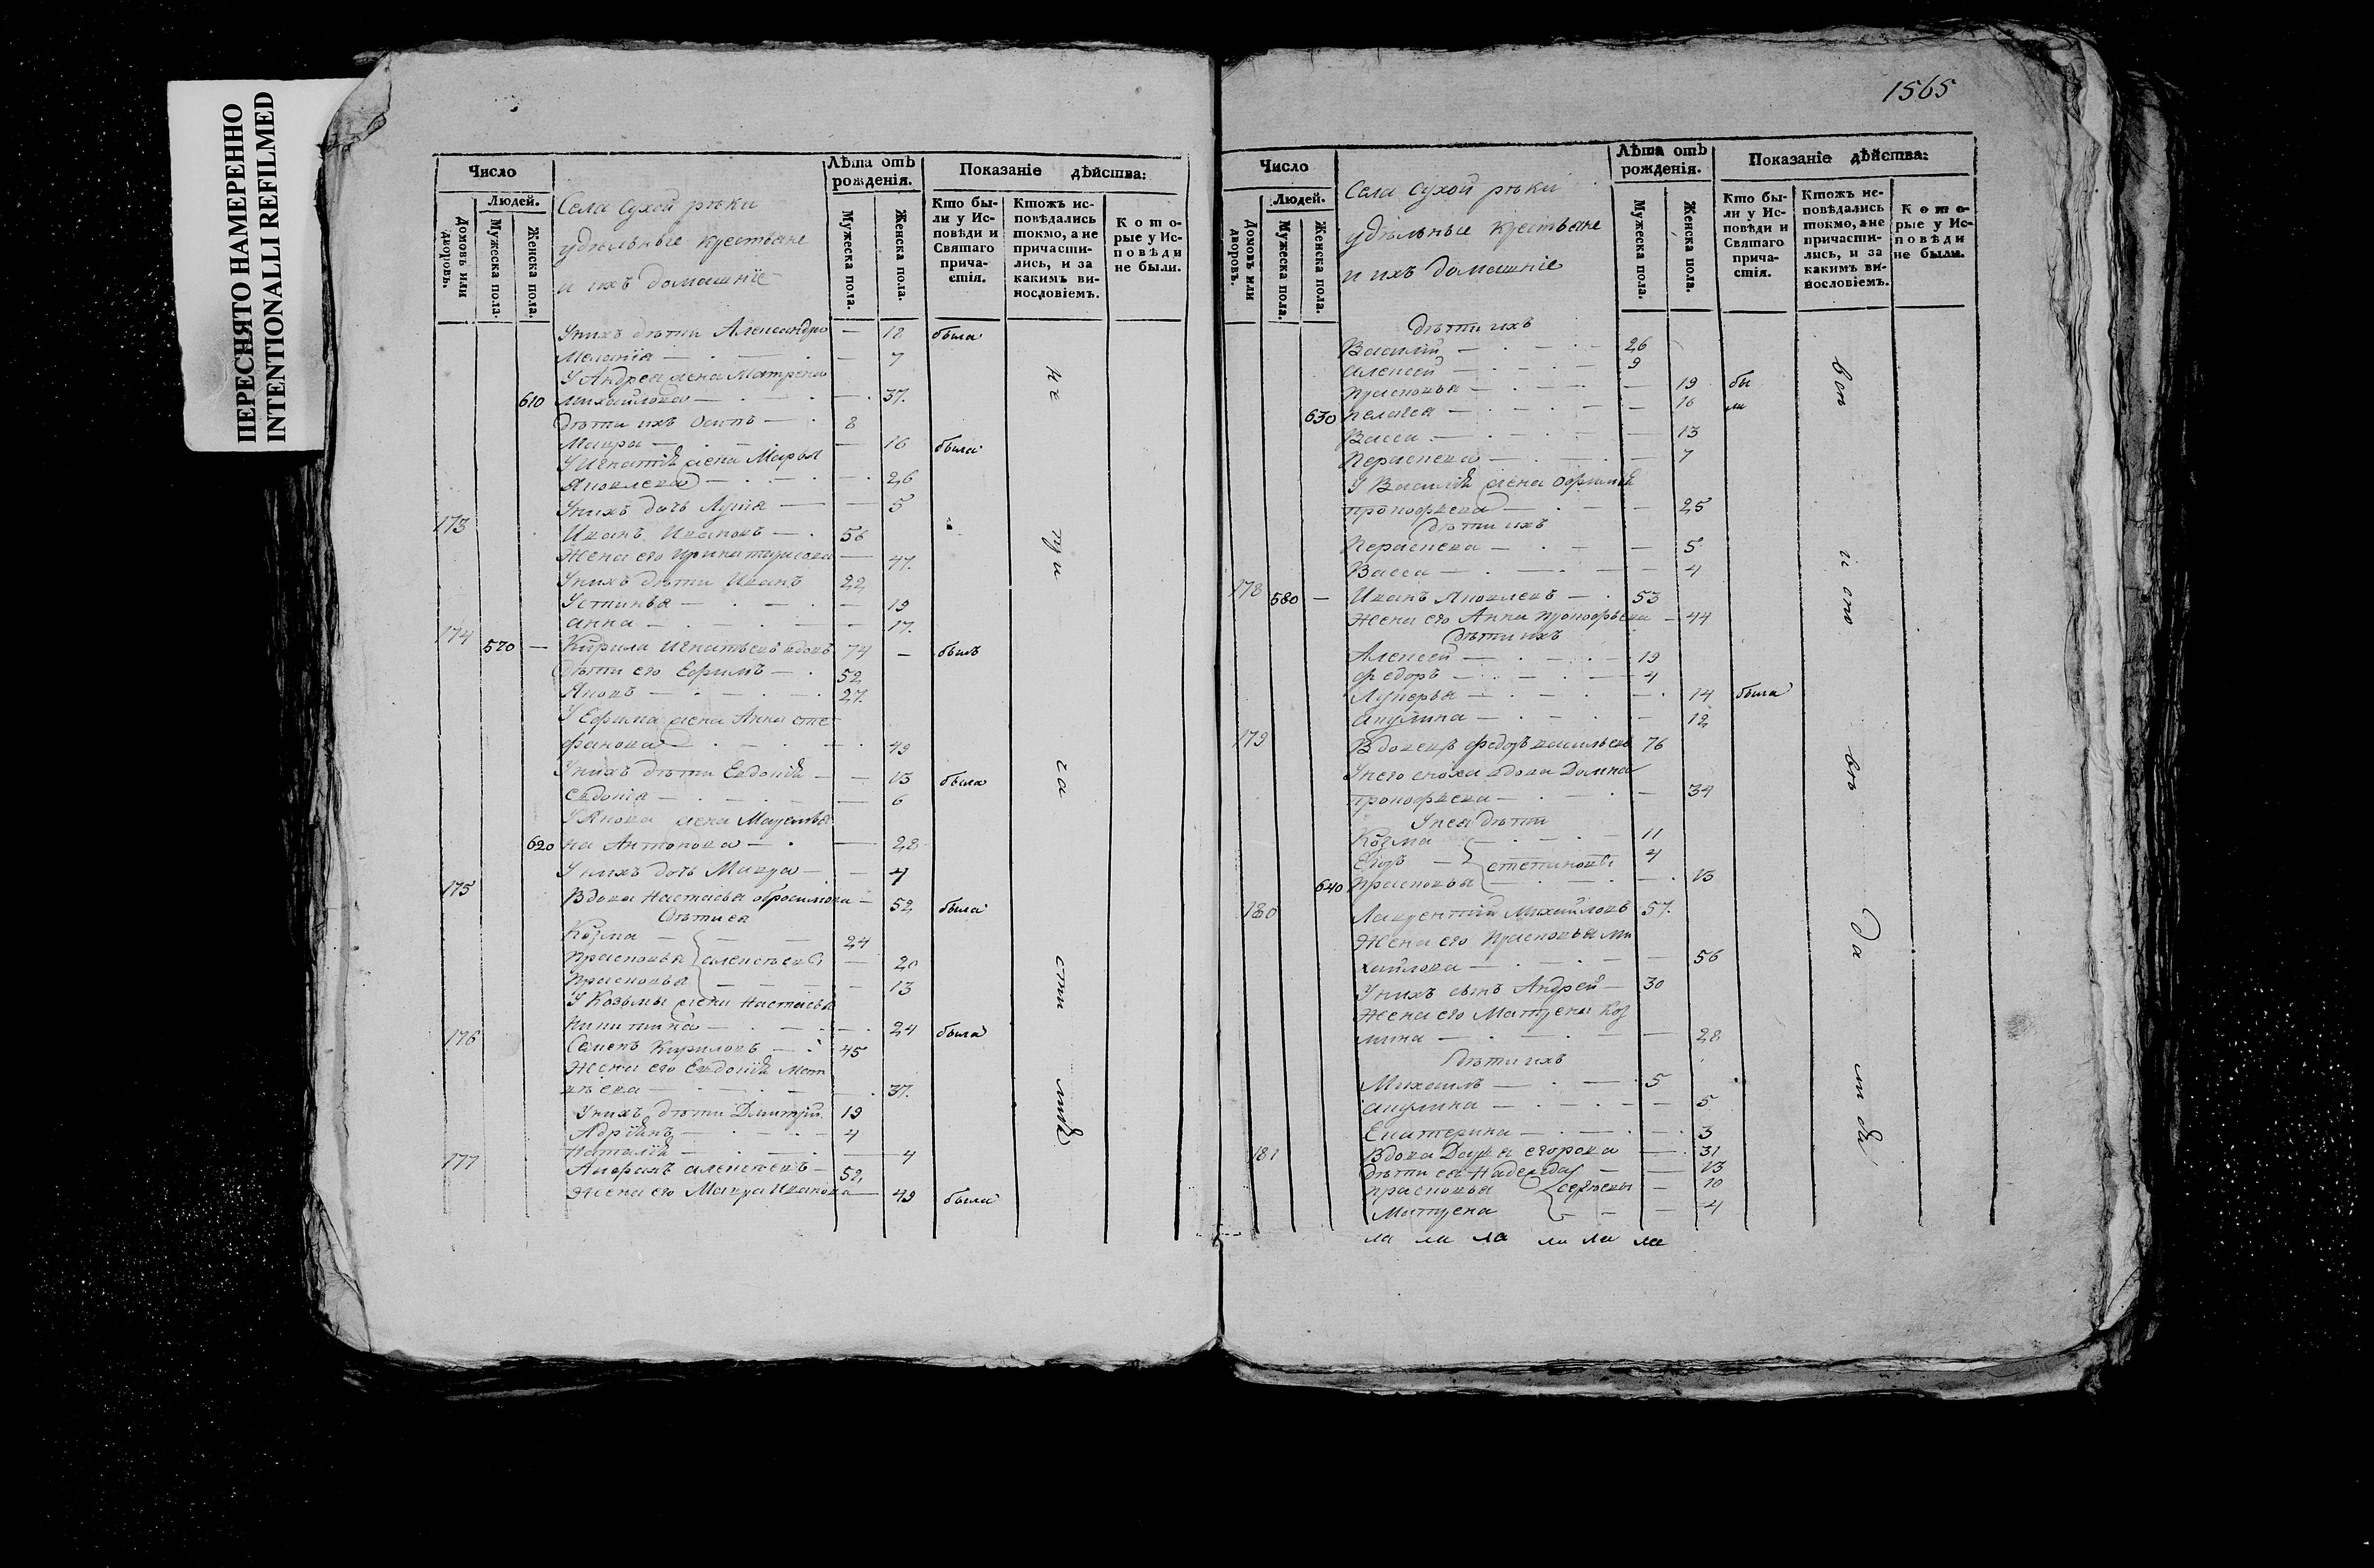 ПЕРЕСНЯТО НАМЕРЕННО
INTENTIONALLI REFILMED
Число
Людей.
Домовъ или дворовъ.
Мужеска пола.
Женска пола.
Села Сухой рѣки
удѣльные крестьяне
и ихъ домашніе
Лѣта отъ рожденія.
Мужеска пола.
Женска пола.
Показаніе дѣйства:
Кто были у Исповѣди и Святаго причастія.
Ктожъ исповѣдались токмо, а не причастились, и за какимъ винословіемъ.
Которые у Исповѣди не были.
У нихъ дѣти Александра — 18 была
Меланія — 7
У Андрея жена Матрена
610 Михайлова — 37
дѣти ихъ Осипъ — 8
Мавра — 16 была
У Игнатія жена Марья
Яковлева — 26
У нихъ дочь — 5
173 Иванъ Ивановъ — 56
Жена его Ирина — 47
У нихъ дѣти Иванъ 22
Устинья — 19
Анна — 17
174 570 — Кирила Игнатьевъ вдовъ 74 — былъ
Дѣти его Ефимъ — 52
Яковъ — 27
У Ефима жена Анна Сте
фанова — 49
У нихъ дѣти Евдокія — 13 была
Евдокія — 6
У Якова жена
620 на Антонова — 28
У нихъ дочь Мавра — 4
175 Вдова Настасья — 52 была
Дѣти ея
Козма — 24
Прасковья Алексѣевы — 20
Прасковья — 13
У Козьмы жена Настасья
Никитина — 24 была
176 Семенъ Кириловъ — 45
Жена его Евдокія Мат
вѣева — 37
У нихъ дѣти Дмитрій 19
Адріянъ — 4
Наталія — 4
177 Алексѣевъ — 52
Жена его Мавра Иванова — 49 была
не
при
ча
сти
лись
1565
Число
Людей.
Домовъ или дворовъ.
Мужеска пола.
Женска пола.
Села Сухой рѣки
удѣльные крестьяне
и ихъ домашніе
Лѣта отъ рожденія.
Мужеска пола.
Женска пола.
Показаніе дѣйства:
Кто были у Исповѣди и Святаго причастія.
Ктожъ исповѣдались токмо, а не причастились, и за какимъ винословіемъ.
Которые у Исповѣди не были.
Дѣти ихъ
Василій — 26
Алексей — 9
Прасковья — 19 бы
630 Пелагея — 16 ли
Васса — 13
Пераскева — 7
У Василія жена
Прокофьева — 25
Дѣти ихъ
Пераскева — 5
Васса — 4
178 580 — Иванъ Яковлевъ — 53
Жена его Анна Прокофьева — 44
Дѣти ихъ
Алексей — 19
Федоръ — 4
Лукерья — 14 была
Акулина — 12
179 Вдовецъ Федоръ Васильевъ 76
У него сноха вдова Домна
Прокофьева — 34
У нея дѣти
Козма — 11
Егоръ — Степановы 4
640 Прасковья — 13
180 Лаврентій Михайловъ 57
Жена его Прасковья Ми
хайлова — 56
У нихъ сынъ Андрей — 30
Жена его Матрена Коз
мина — 28
Дѣти ихъ
Михаилъ — 5
Акулина — 5
Екатерина — 3
181 Вдова Дарья Егорова — 31
Дѣти ея Надежда — 13
Прасковья — 10
Матрена — 4
ла ли ла ли ла ла